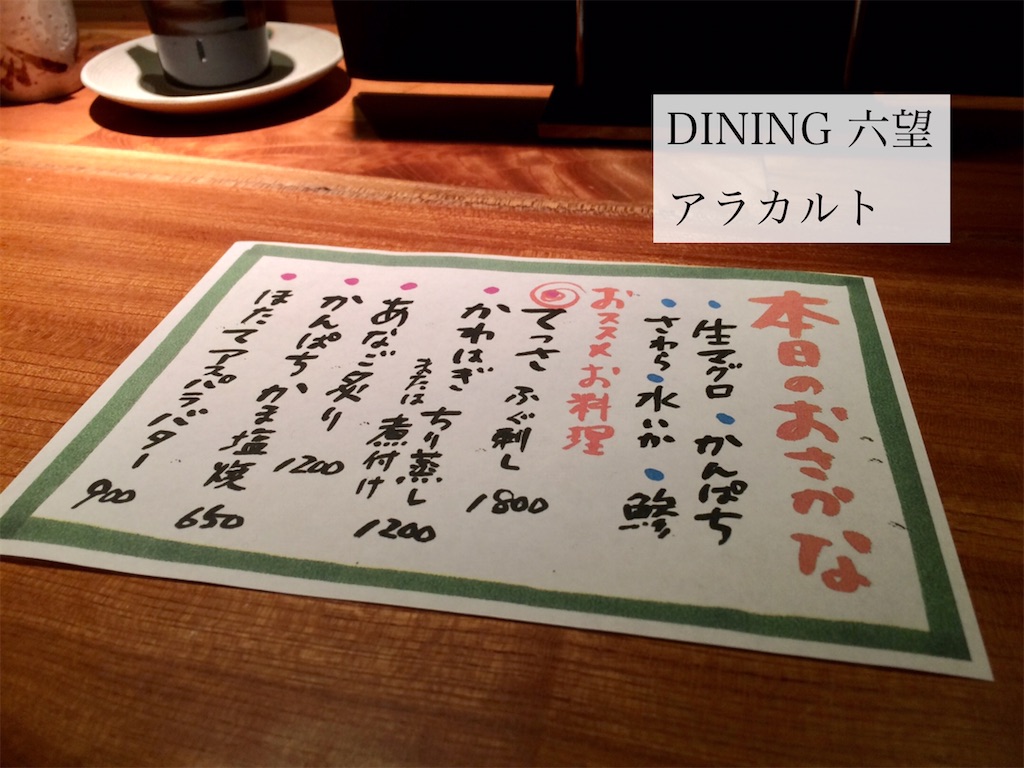 DINING 六望
アラカルト
本日のおさかな
・生マグロ ・かんぱち
・さわら ・水いか ・鯵
おススメお料理
てっさ ふぐ刺し 1800
・かわはぎ ちり蒸し
または 煮付け 1200
・あなご炙り 1200
・かんぱちかま塩焼 650
・ほたてアスパラバター 900